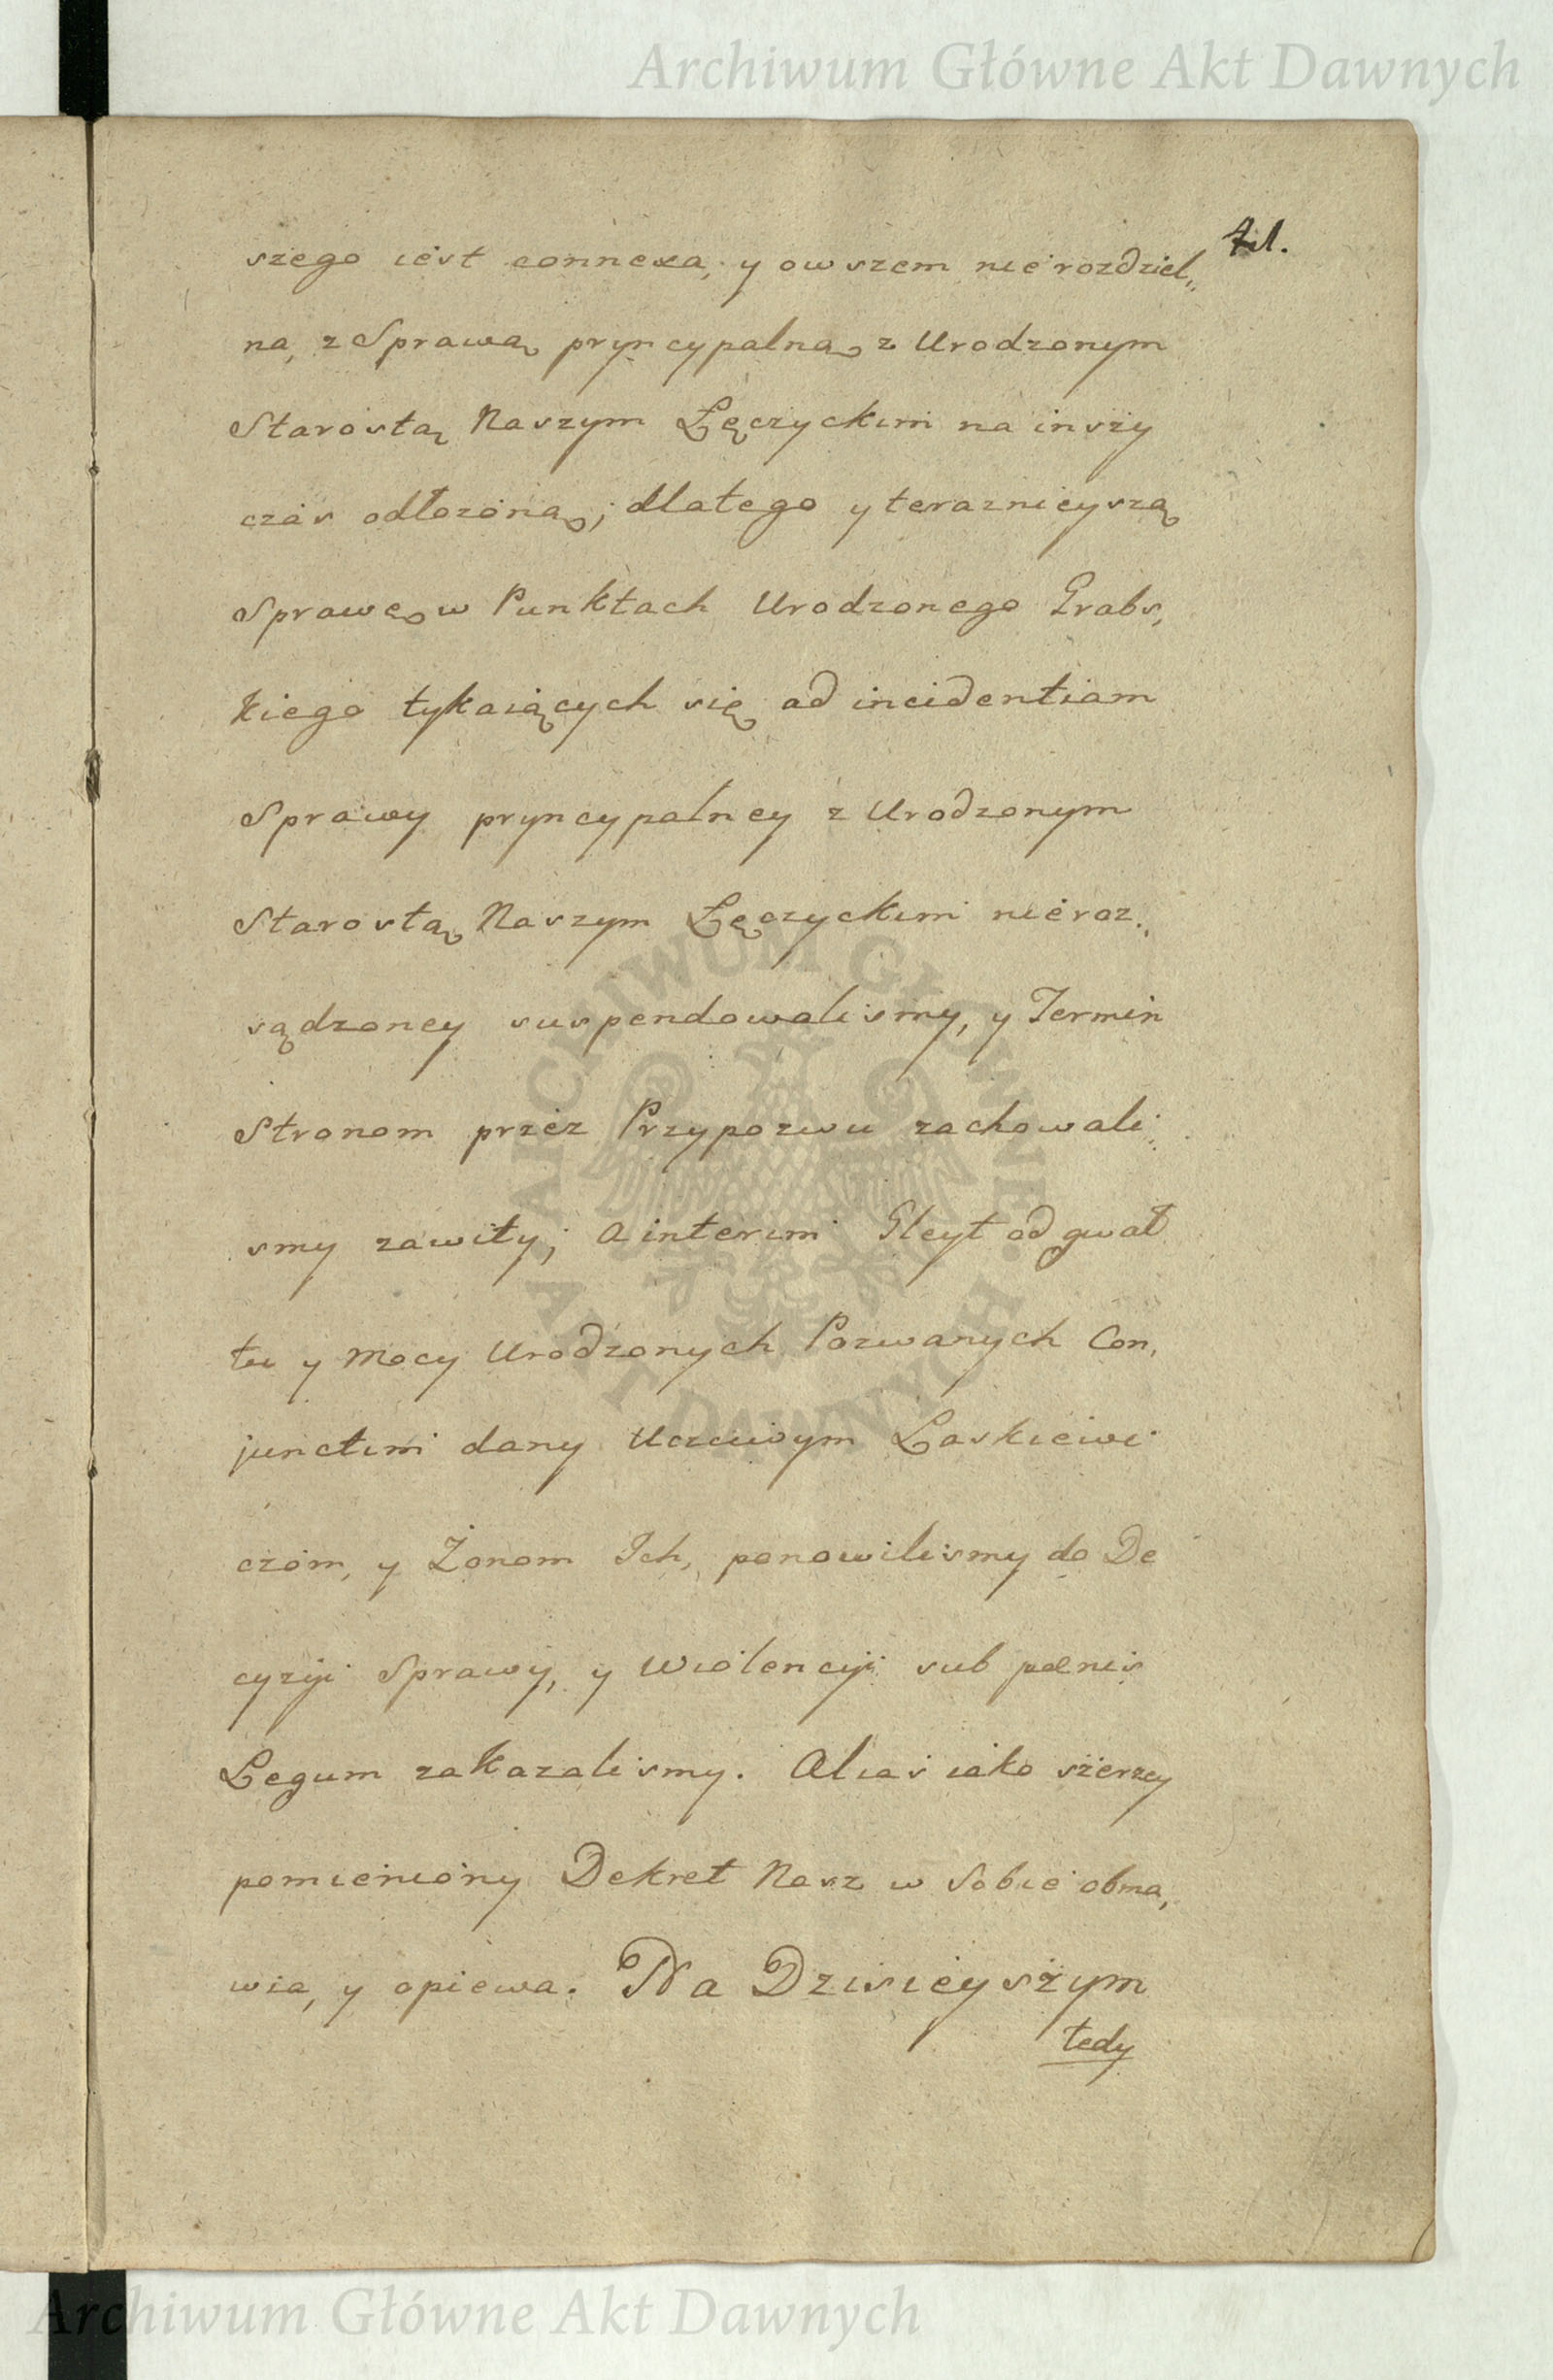 Archiwum Główne Akt Dawnych
41.
szego iest connexa, y owszem nierozdziel„
na, z Sprawą pryncypalną z Urodzonym
Starostą Naszym Łęczyckim na inszy
czas odłożoną; dlatego y teraznieyszą
Sprawę w Punktach Urodzonego Grabs„
kiego tykaiących się ad incidentiam
Sprawy pryncypalney z Urodzonym
Starostą Naszym Łęczyckim nieroz„
sądzoney suspendowalismy, y Termin
Stronom przez Przypozwu zachowali„
smy zawity; a interim Gleyt od gwał
tu y mocy Urodzonych Pozwanych Con„
junctim dany Uczciwym Laskiewi
czom, y Żonom Ich, ponowilismy do De
cyzyi Sprawy, y Wiolencyi sub pœnis
Legum zakazalismy. Alias iako szerzey
pomieniony Dekret Nasz w Sobie obma„
wia, y opiewa. Na Dzisieyszym
tedy
ARCHIWUM GŁÓWNE AKT DAWNYCH
Archiwum Główne Akt Dawnych